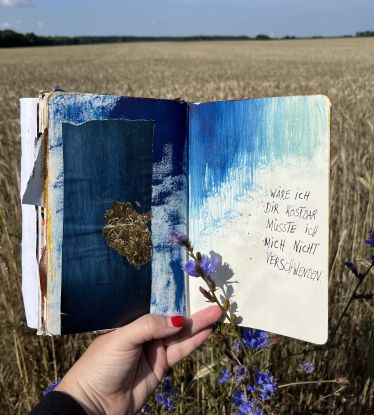 WÄRE ICH
DIR KOSTBAR
MÜSSTE ICH
MICH NICHT
VERSCHWENDEN